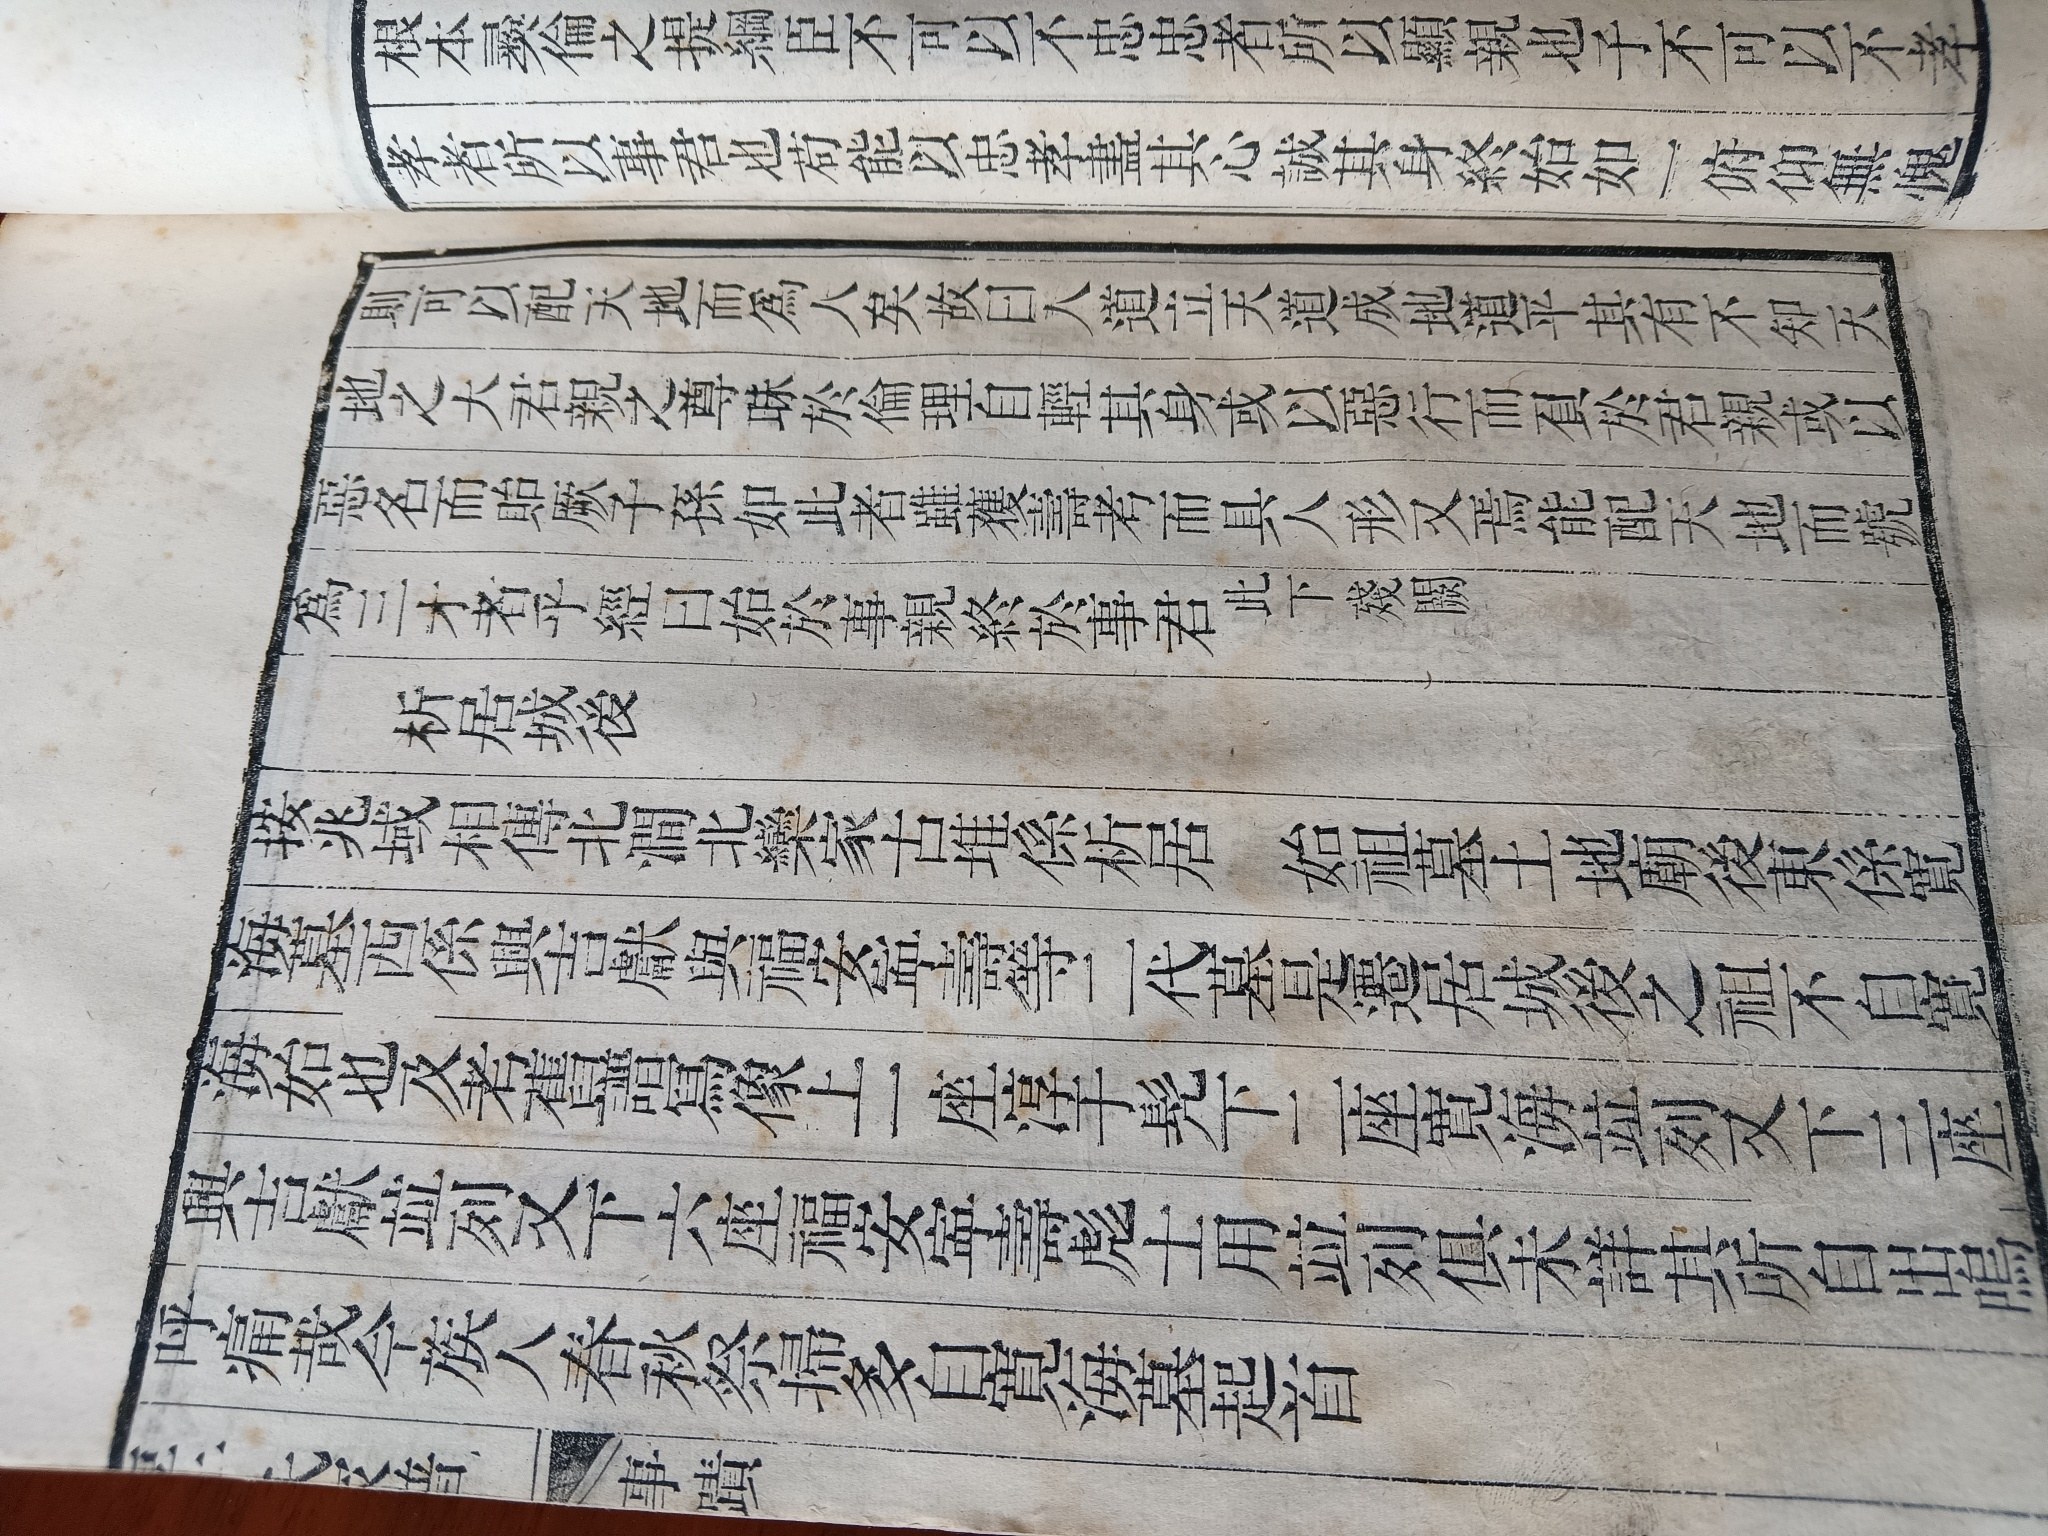 根本彝倫之提綱臣不可以不忠忠者所以顯親也子不可以不孝
孝者所以事君也苟能以忠孝盡其心誠其身終始如一俯仰無愧
則可以配天地而為人矣故曰人道立天道成地道平其有不知天
地之大君親之尊昧於倫理自輕其身或以惡行而負於君親或以
惡名而貽厥子孫如此者雖獲壽考而具人形又焉能配天地而號
為三才者乎經曰始於事親終於事君此下殘闕
析居城後
按兆域相傳北澗北欒家古堆係析居 始祖墓土地廟後東係寬
海墓西係興吉獻與福安寧壽等二代墓是遷居城後之祖不自寬
海始也及考舊譜寫像上一座淳于髡下二座寬海並列又下三座
興吉獻並列又下六座福安寧壽彪士用並列俱未詳其所自出嗚
呼痛哉今族人春秋祭掃多自寬海墓起首
事蹟